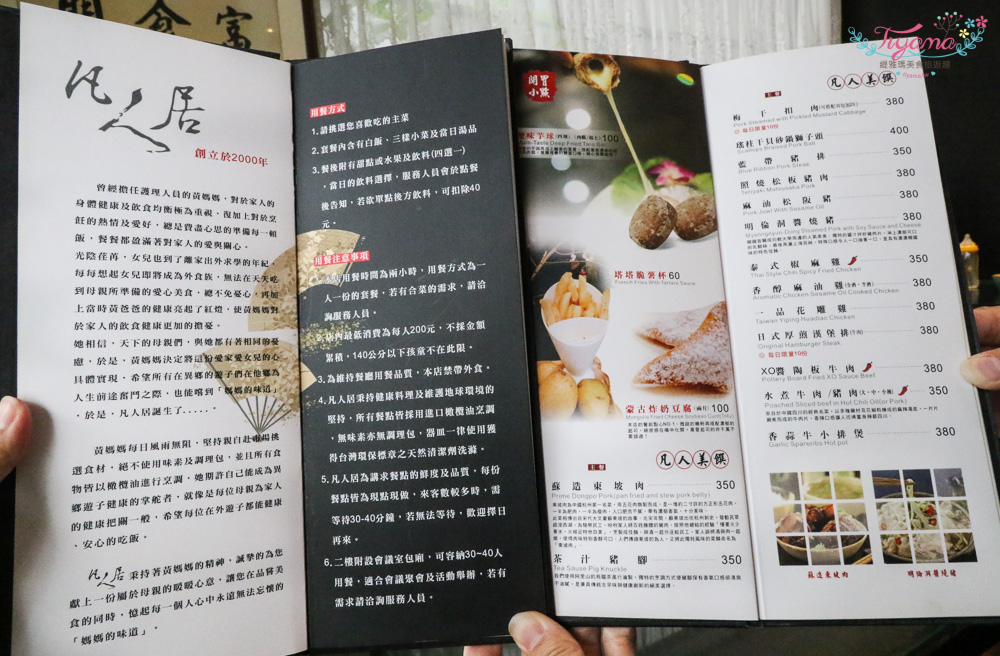 富
食
開
Tiyana
緹雅瑪美食旅遊趣
凡人居
創立於2000年
曾經擔任護理人員的黃媽媽，對於家人的
身體健康及飲食均衡極為重視，復加上對於烹
飪的熱情及愛好，總是費盡心思的準備每一頓
飯，餐餐都盈滿著對家人的愛與關心。
光陰荏苒，女兒也到了離家出外求學的年紀，
每每想起女兒即將成為外食族，無法在天天吃
到母親所準備的愛心美食，總不免憂心，再加
上當時黃爸爸的健康亮起了紅燈，使黃媽媽對
於家人的飲食健康更加的擔憂。
她相信，天下的母親們，與她都有著相同的憂
慮，於是，黃媽媽決定將這份愛家愛女兒的心
具體實現，希望所有在異鄉的遊子們在他鄉為
人生前途奮鬥之際，也能嚐到「媽媽的味道」
，於是，凡人居誕生了.....。
黃媽媽每日風雨無阻，堅持親自赴市場挑
選食材，絕不使用味素及調理包，並且所有食
物皆以橄欖油進行烹調，她期許自己能成為異
鄉遊子健康的掌舵者，就像是每位母親為家人
的健康把關一般，希望每位在外遊子都能健康
、安心的吃飯。
凡人居秉持著黃媽媽的精神，誠摯的為您
獻上一份屬於母親的暖暖心意，讓您在品嘗美
食的同時，憶起每一個人心中永遠無法忘懷的
「媽媽的味道」。
用餐方式
1.請挑選您喜歡吃的主菜
2.套餐內含有白飯、三樣小菜及當日湯品
3.餐後附有甜點或水果及飲料(四選一)
，當日的飲料選擇，服務人員會於點餐
後告知，若欲單點後方飲料，可扣除40
元。
用餐注意事項
店用餐時間為兩小時，用餐方式為一
人一份的套餐，若有合菜的需求，請洽
詢服務人員。
店內最低消費為每人200元，不採金額
累積，140公分以下孩童不在此限。
3.為維持餐廳用餐品質，本店禁帶外食。
4.凡人居秉持健康料理及維護地球環境的
堅持，所有餐點皆採用進口橄欖油烹調
，無味素亦無調理包，器皿一律使用獲
得台灣環保標章之天然清潔劑洗滌。
5.凡人居為講求餐點的鮮度及品質，每份
餐點皆為現點現做，來客數較多時，需
等待30-40分鐘，若無法等待，歡迎擇日
再來。
6.二樓附設會議室包廂，可容納30~40人
用餐，適合會議聚會及活動舉辦，若有
需求請洽詢服務人員。
開胃小點
味芋球 100
塔塔脆薯杯 60
French Fries With Tartare Sauce
蒙古炸奶豆腐 100
主餐
凡人美饌
蘇造東坡肉 350
Prime Dongpo Pork(pan fried and stew pork belly)
茶汁豬腳 350
Tea Sause Pig Knuckle
主餐
凡人美饌
梅干扣肉 380
Pork Steamed with Pickled Mustard Cabbage
每日限量10份
瑤柱干貝砂鍋獅子頭 400
Scallops Braised Pork Ball
藍帶豬排 350
Blue Ribbon Pork Steak
照燒松板豬肉 380
Teriyaki Matsusaka Pork
麻油松阪豬 380
Pork Jowl With Sesame Oil
明倫洞醬燒豬 380
Myeongnyun-Dong Steamed Pork with Soy Sauce and Cheese
泰式椒麻雞 350
Thai Style Chili Spicy Fried Chicken
香醇麻油雞 380
Aromatic Chicken Sesame Oil Cooked Chicken
一品花雕雞 380
Taiwan Yiping Huadiao Chicken
日式厚煎漢堡排 380
Original Hamburger Steak
每日限量10份
XO醬陶板牛肉 380
Pottery Board Fried XO Sauce Beef
水煮牛肉/豬肉 380
Poached Sliced beef in Hot Chili Oil(or Pork)
香蒜牛小排煲 380
Garlic Spareribs Hot pot
蘇造東坡肉
明倫洞醬燒豬